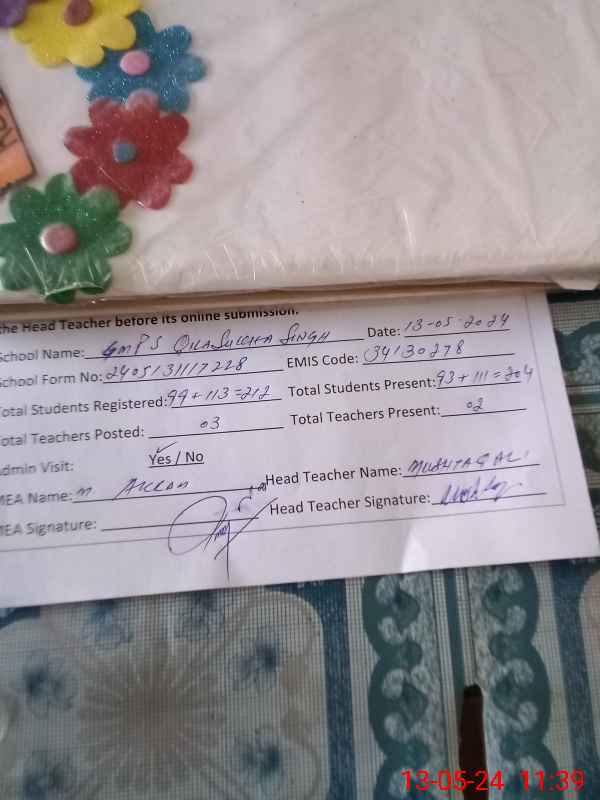 the Head Teacher before its online submission.
School Name: GMPS Date: 13-05-2024
School Form No: 2405131117228 EMIS Code: 34130278
Total Students Registered: 99+113=212 Total Students Present: 93+111=204
Total Teachers Posted: 03 Total Teachers Present: 02
Admin Visit: Yes / No
MEA Name: M Akram Head Teacher Name: MUSHTAQ ALI
MEA Signature: Head Teacher Signature:
13-05-24 11:39